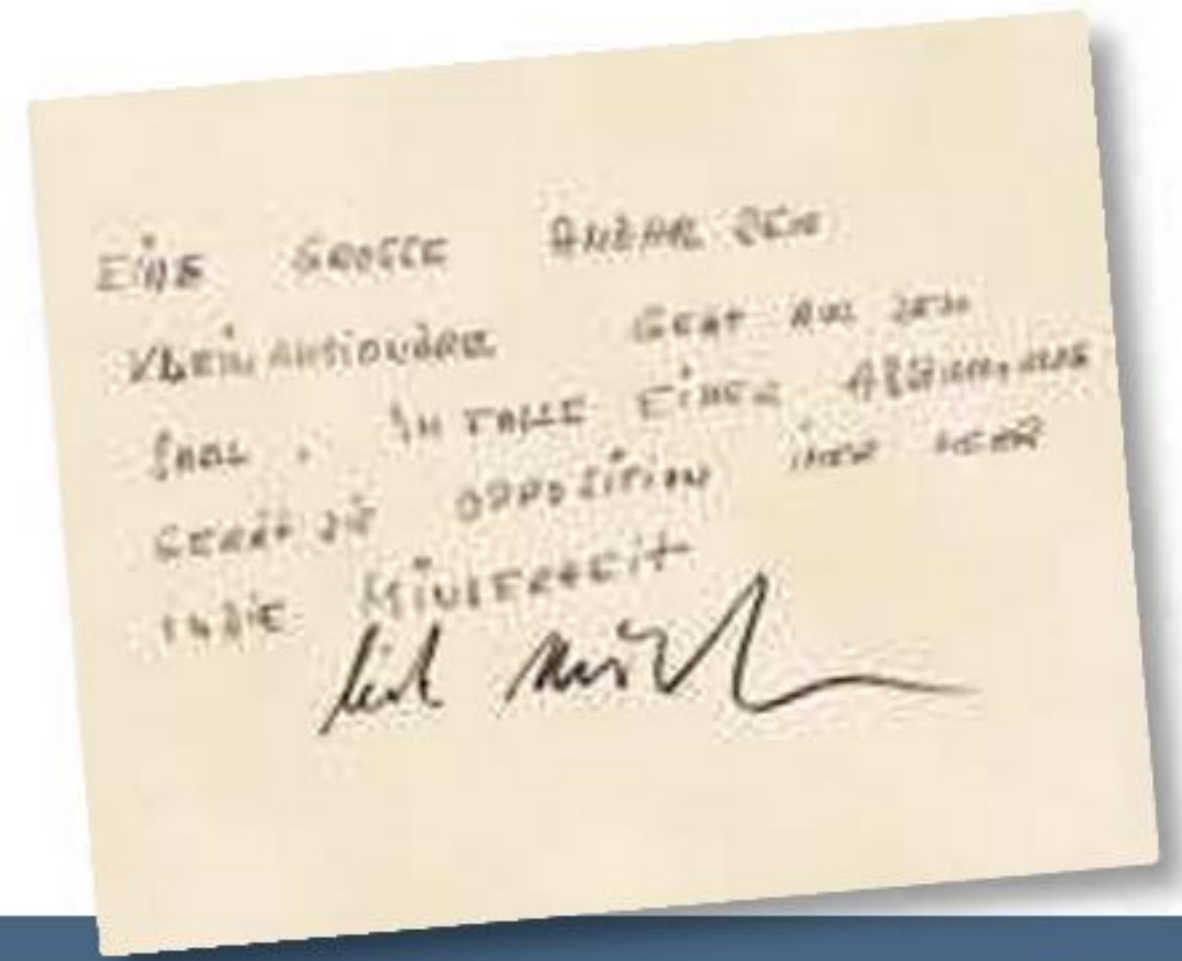 EINE GROSSE ANZAHL DER
KLEINAKTIONÄRE GEHT AUS DEM
SAAL. IM FALLE EINER ABSTIMMUNG
GERÄT DIE OPPOSITION IMMER MEHR
IN DIE MINDERHEIT